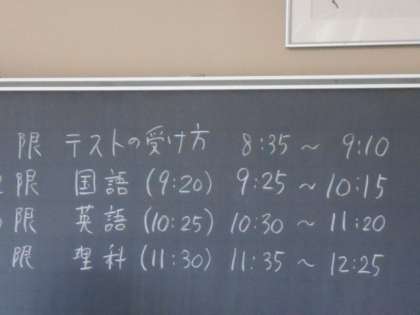 限 テストの受け方 8:35 ~ 9:10
2限 国語 (9:20) 9:25 ~ 10:15
限 英語 (10:25) 10:30 ~ 11:20
限 理科 (11:30) 11:35 ~ 12:25